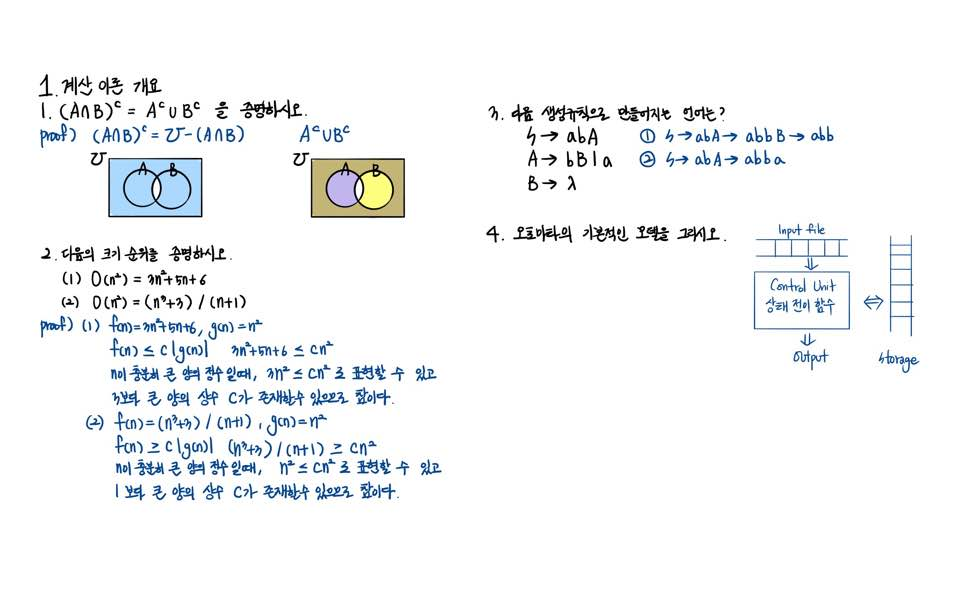 1. 계산 이론 개요
1. (A∩B)ᶜ = Aᶜ∪Bᶜ 을 증명하시오.
proof) (A∩B)ᶜ = U-(A∩B) Aᶜ∪Bᶜ
U A B
U A B
2. 다음의 크기 순위를 증명하시오.
(1) O(n²) = 3n²+5n+6
(2) O(n²) = (n³+3) / (n+1)
proof) (1) f(n)=3n²+5n+6, g(n)=n²
f(n) ≤ c|g(n)| 3n²+5n+6 ≤ cn²
n이 충분히 큰 양의 정수일때, 3n² ≤ cn² 로 표현할 수 있고
3보다 큰 양의 상수 C가 존재할수 있으므로 참이다.
(2) f(n)=(n³+3) / (n+1), g(n)=n²
f(n) ≥ c|g(n)| (n³+3) / (n+1) ≥ cn²
n이 충분히 큰 양의 정수일때, n² ≤ cn² 로 표현할 수 있고
1보다 큰 양의 상수 C가 존재할수 있으므로 참이다.
3. 다음 생성규칙으로 만들어지는 언어는?
S → abA ① S→abA→abbB→abb
A → bB|a ② S→abA→abba
B → λ
4. 오토마타의 기본적인 모델을 그리시오.
Input file
Control Unit
상태 전이 함수
⇔
Output
Storage